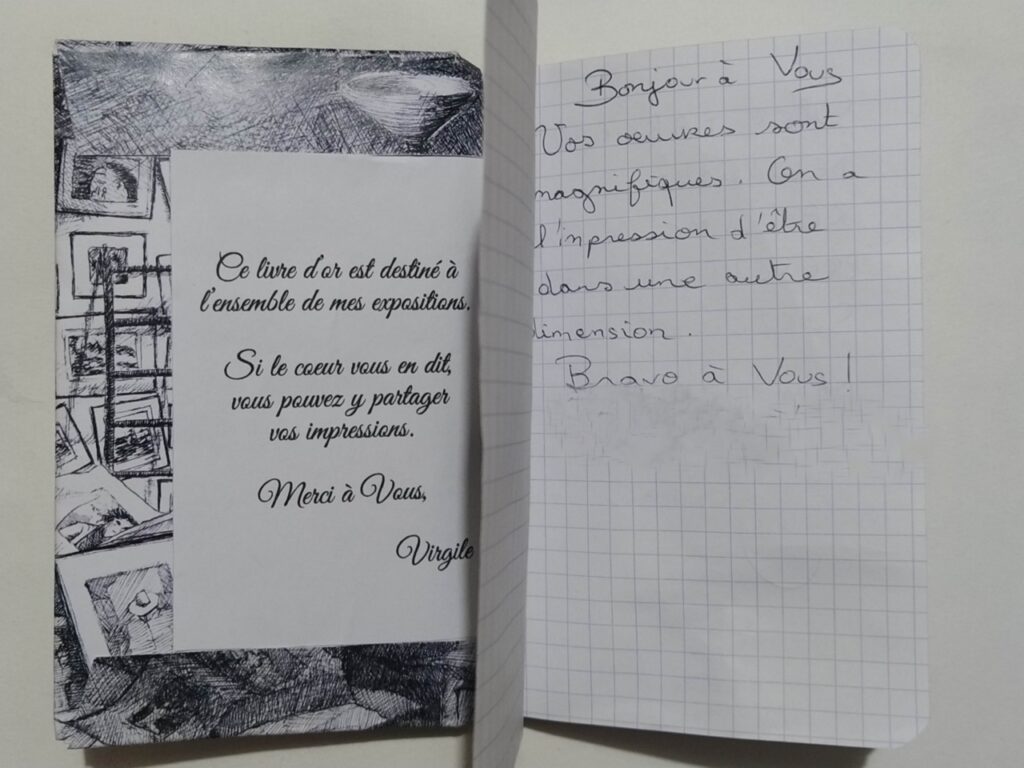 Ce livre d'or est destiné à
l'ensemble de mes expositions.
Si le coeur vous en dit,
vous pouvez y partager
vos impressions.
Merci à Vous,
Virgile
Bonjour à Vous
Vos oeuvres sont
magnifiques. On a
l'inpression d'être
dans une autre
dimension.
Bravo à Vous !